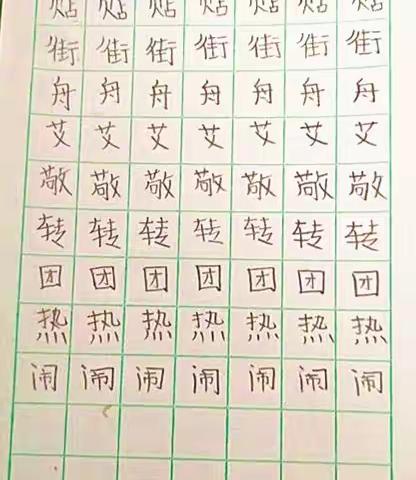 贴贴贴贴贴贴贴
街街街街街街街
舟舟舟舟舟舟舟
艾艾艾艾艾艾艾
敬敬敬敬敬敬敬
转转转转转转转
团团团团团团团
热热热热热热热
闹闹闹闹闹闹闹